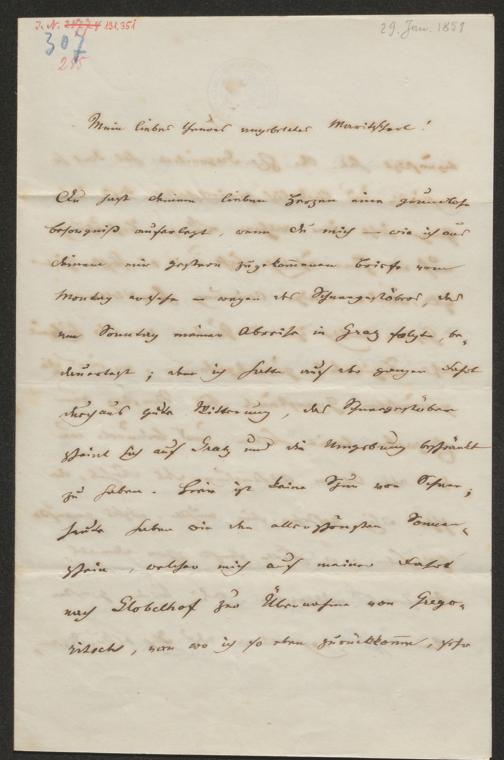 I. N. 131.351
307
285
29. Jan. 1851
Mein liebes theures angebetetes Moritzherl!
Du hast deinem lieben Herzen eine grundlose
Besorgniß auferlegt, wenn du mich — wie ich aus
deinem mir gestern zugekommenen Briefe vom
Montag ersehe — wegen des Schneegestöbers, das
am Sonntag meiner Abreise in Graz folgte, be-
dauertest; aber ich hatte auf der ganzen Fahrt
durchaus gute Witterung, das Schneegestöber
scheint sich auf Gratz und die Umgebung beschränkt
zu haben. Hier ist keine Spur von Schnee;
heute haben wir den allerschönsten Sonnen-
schein, welcher mich auf meiner Fahrt
nach Globelhof zur Übernahme von Grego-
ritsch, von wo ich so eben zurückkomme, sehr